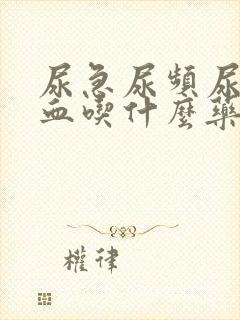 尿急尿頻尿
血喫什麽藥
權律